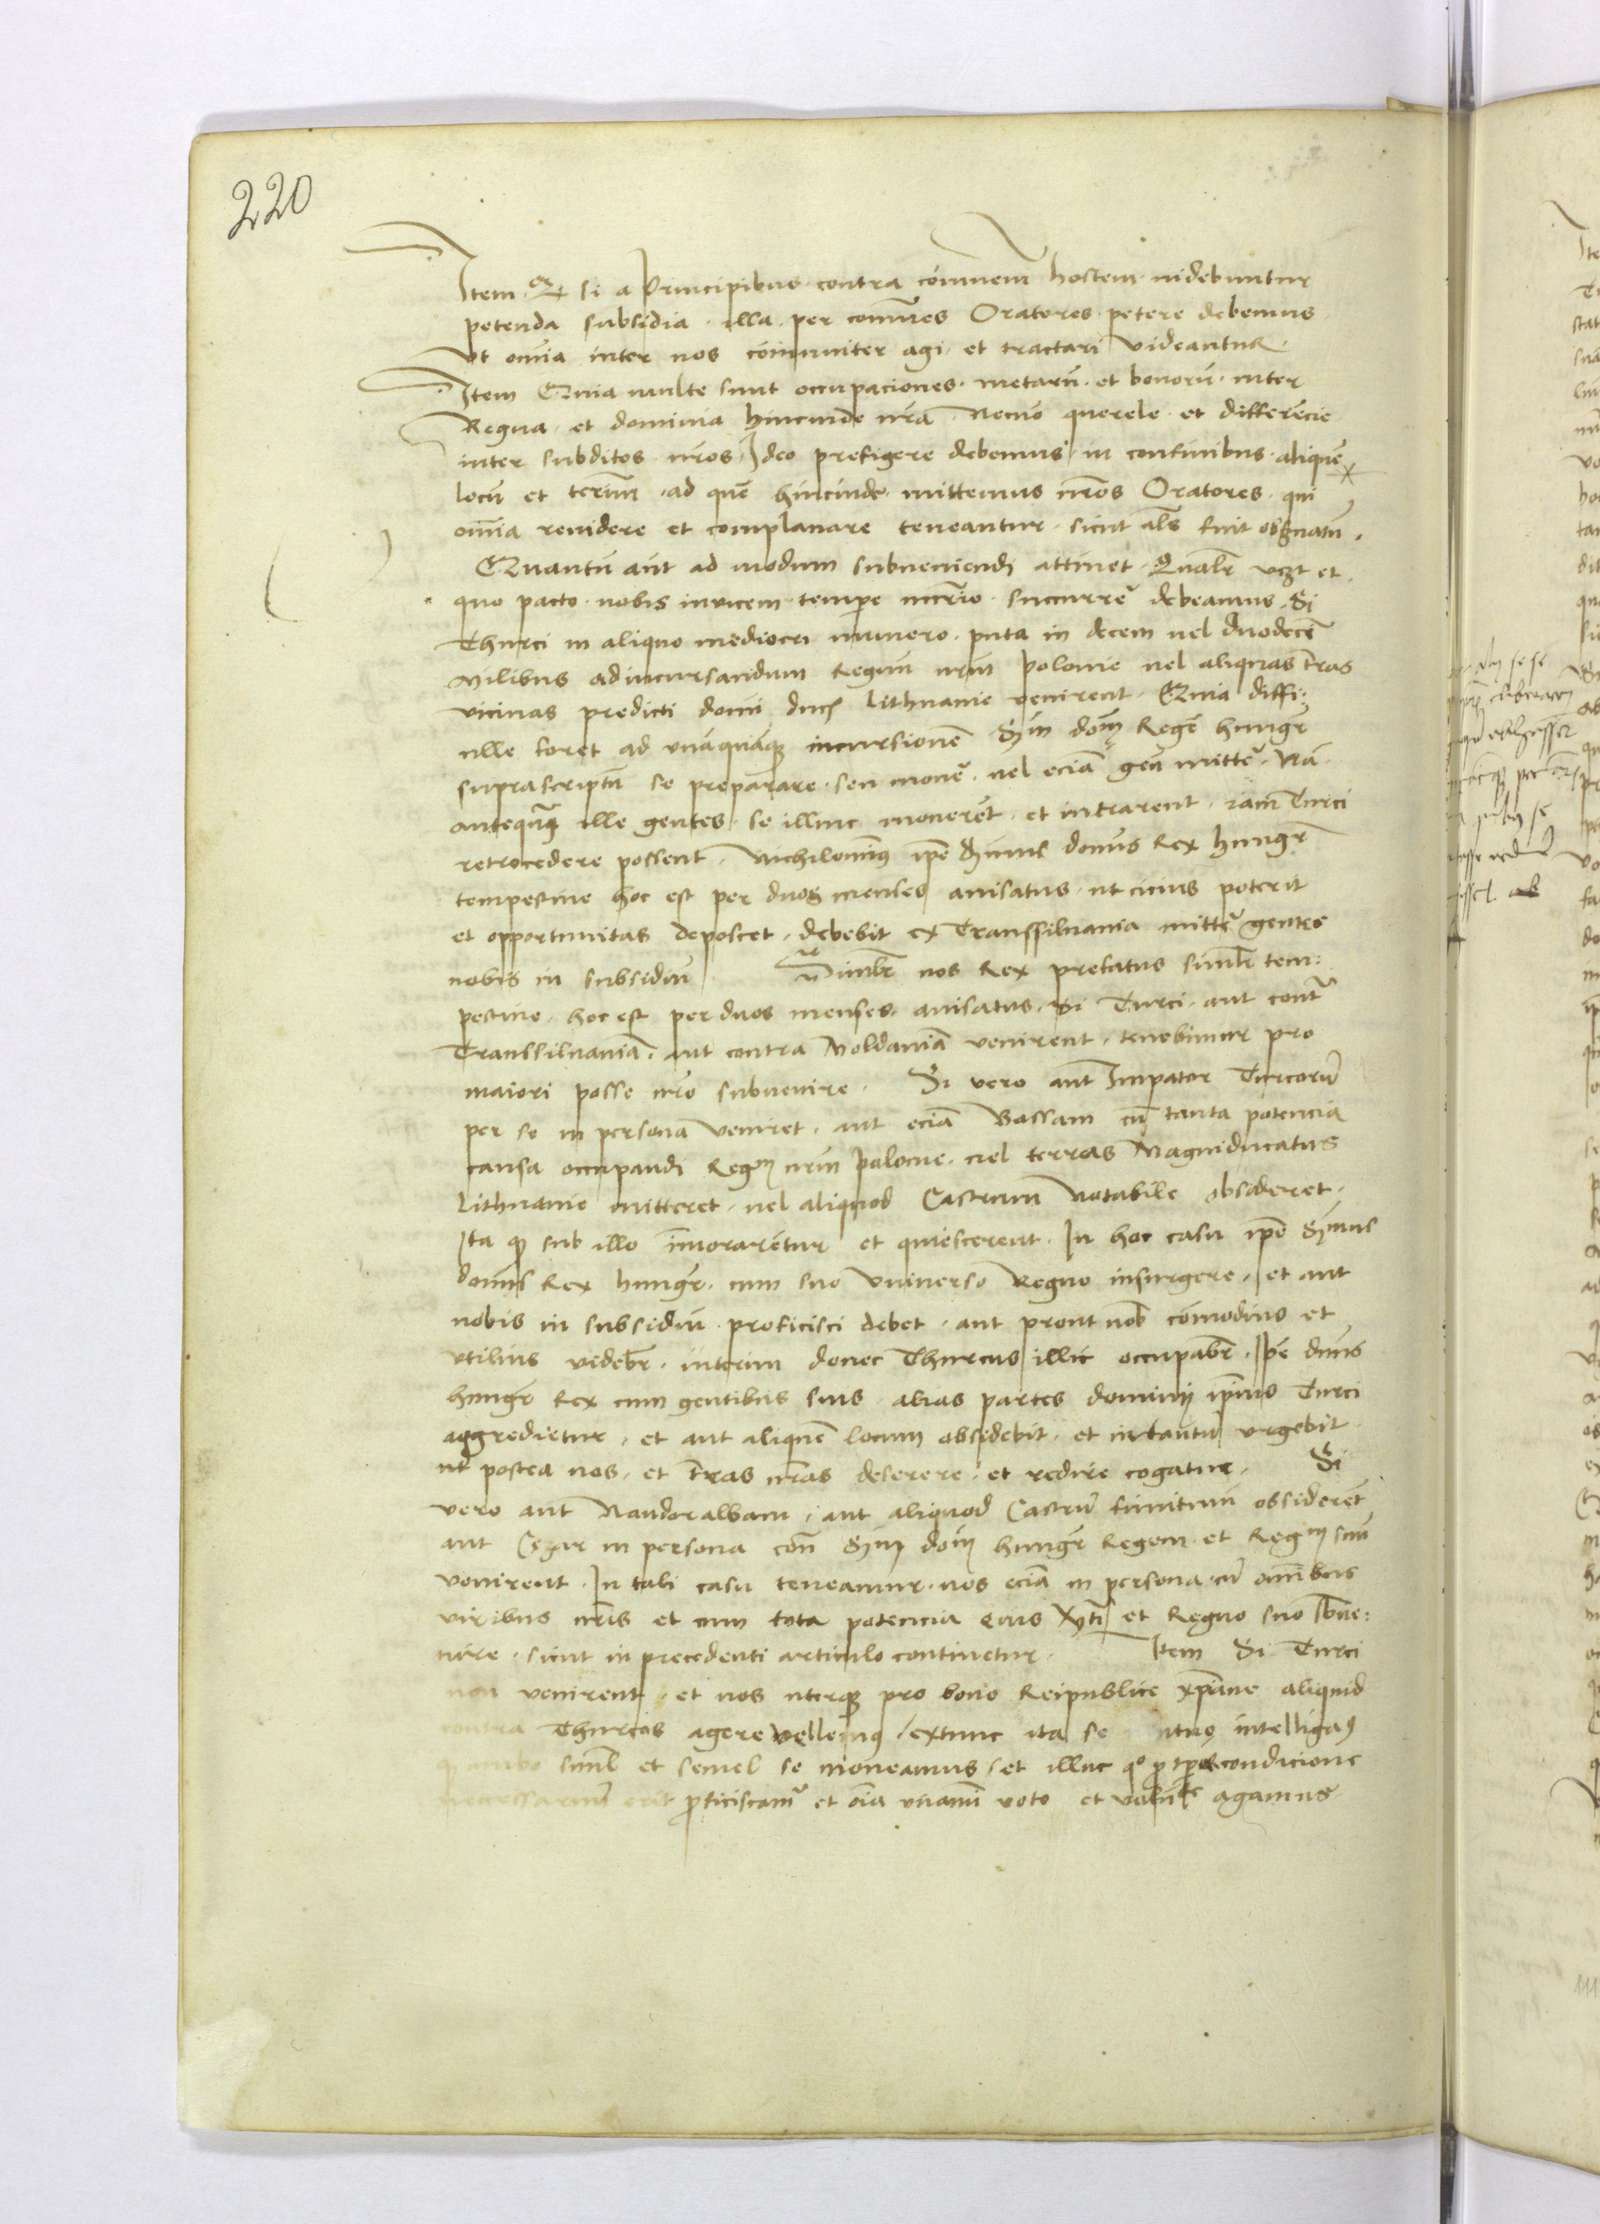 220
Item Qz si a Principibus contra com̄unem hostem videbuntur
petenda subsidia illa per com̄unes Oratores petere debemus
Vt om̄ia inter nos com̄uniter agi et tractari videantur
Item Quia multe sunt occupaciones metarū et bonorū inter
Regna et dominia hincinde nr̄a Necnō querele et differencie
inter subditos nr̄os Ideo prefigere debemus in confinibus aliquē
locū et termīn ad quē hincinde mittemus nr̄os Oratores qui
om̄ia revidere et complanare teneantur sicut al̄s fuit obseruatū
Quantū aūt ad modum subueniendi attinet Qualr̄ vczt et
quo pacto nobis inuicem tempe ncr̄io succurrē debeamus Si
Thurci in aliquo mediocri numero puta in decem uel duodecē
Milibus ad incursandum Regnū nrm̄ Polonie uel aliquas tr̄as
vicinas predicti domi ducis Lithuanie venirent Quia diffi:
cille foret ad vnāquāq₃ incursionē Sȳm dom̄ Regē hungr̄
suprascriptū se preparare seu mouē uel eciā gen mittē Nā
anteq̄uq₃ ille gentes se illinc mouerēt et intrarent iam Turci
retrocedere possent Nichilomīus ip̄e Sȳmus domūs Rex hungr̄
tempestiue hoc est per duos menses auisatus ut cicius poterit
et opportunitas deposcet debebit ex Transsiluania mittē gentes
nobis in subsidiū nos Rex prefatus simlr̄ tem:
pestiue hoc est per duos menses auisatus si Turci aut contr̄
Transsiluaniā aut contra Moldauiā venirent tenebimur pro
maiori posse nr̄o subuenire Si vero aut Imp̄ator Turcorū
per se in persona veniret aut eciā Bassam cū tanta potencia
causa occupandi Regm̄ nrm̄ Polonie uel terras Magniducatus
Lithuanie mitteret uel aliquod Castrum Notabile obsideret
Ita q₃ sub illo īmorarētur et quiescerent In hoc casu ip̄e Sȳmus
domūs Rex hungr̄ cum suo Vniuerso Regno insurgere et aut
nobis in subsidiū proficisci debet aut prout nob̄ com̄odius et
vtilius videbr̄ interim donec Thurcus illic occupabr̄ Ip̄e dnūs
hungr̄ Rex cum gentibus suis alias partes dominij ip̄ius Turci
aggredietur et aut aliquē locum obsidebit et intantū urgebit
ut postea nos et tr̄as nr̄as deserere et redire cogatur Si
vero aut Nandoralbam aut aliquod Castrū finitimū obsiderēt
aut Cesar in persona con̄ Sȳm dom̄ hungr̄ Regem et Regm̄ suū
venirent In tali casu teneamur nos eciā in persona cū omībus
viribus nr̄is et cum tota potencia eius et Regno suo sbue:
nire sicut in precedenti articulo continetur Item Si Turci
non venirent et nos uterq₃ pro bono Reipublice xp̄iane aliquid
contra Thurcos agere vellemus extunc ita se intelligat
q₃ ambo siml̄ et semel se moueamus et illuc condicione
necessariū erit p̄ficiscamr̄ et oīa vnanimi voto et agamus